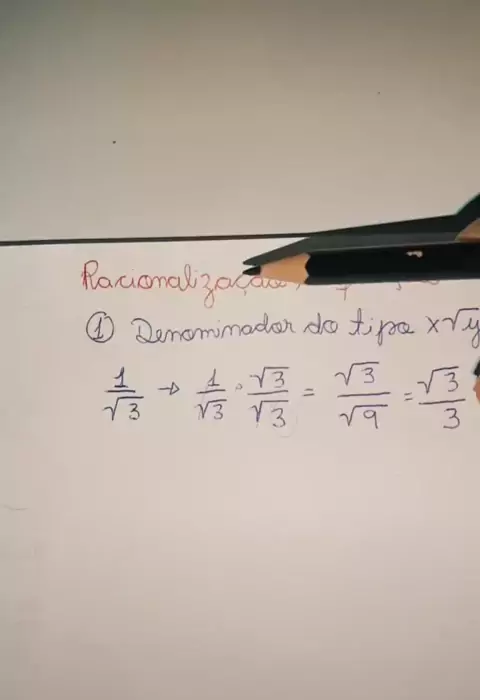 Racionalização
① Denominador do tipo x√y
1/√3 → 1/√3 · √3/√3 = √3/√9 = √3/3